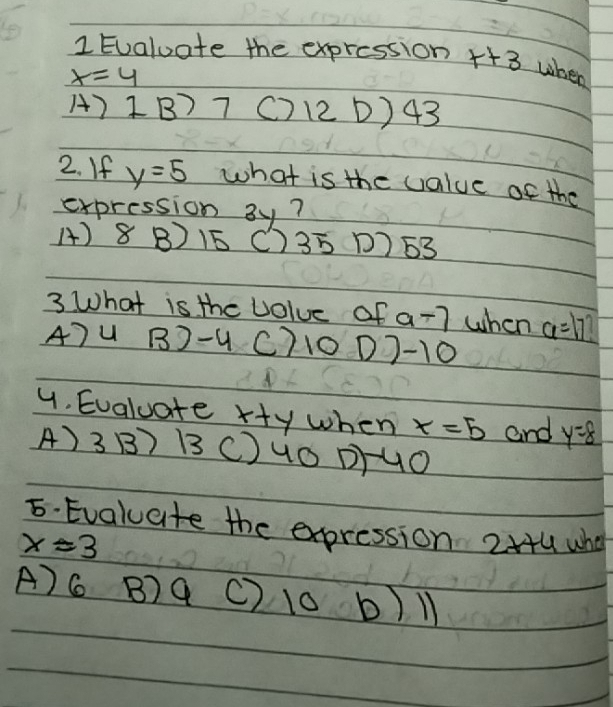 1 Evaluate the expression x+3 when
x=4
A) 1 B) 7 C) 12 D) 43
2. If y=5 what is the value of the
expression 3y?
A) 8 B) 15 C) 35 D) 53
3 What is the value of a-7 when a=17?
A) 4 B) -4 C) 10 D) -10
4. Evaluate x+y when x=5 and y=8
A) 3 B) 13 C) 40 D) -40
5. Evaluate the expression 2x+4 whe
x=3
A) 6 B) 9 C) 10 D) 11